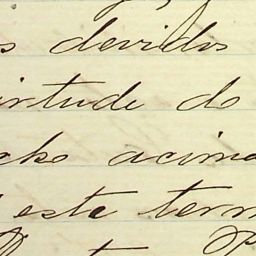 s devidos
irtude do
cho acima
este term